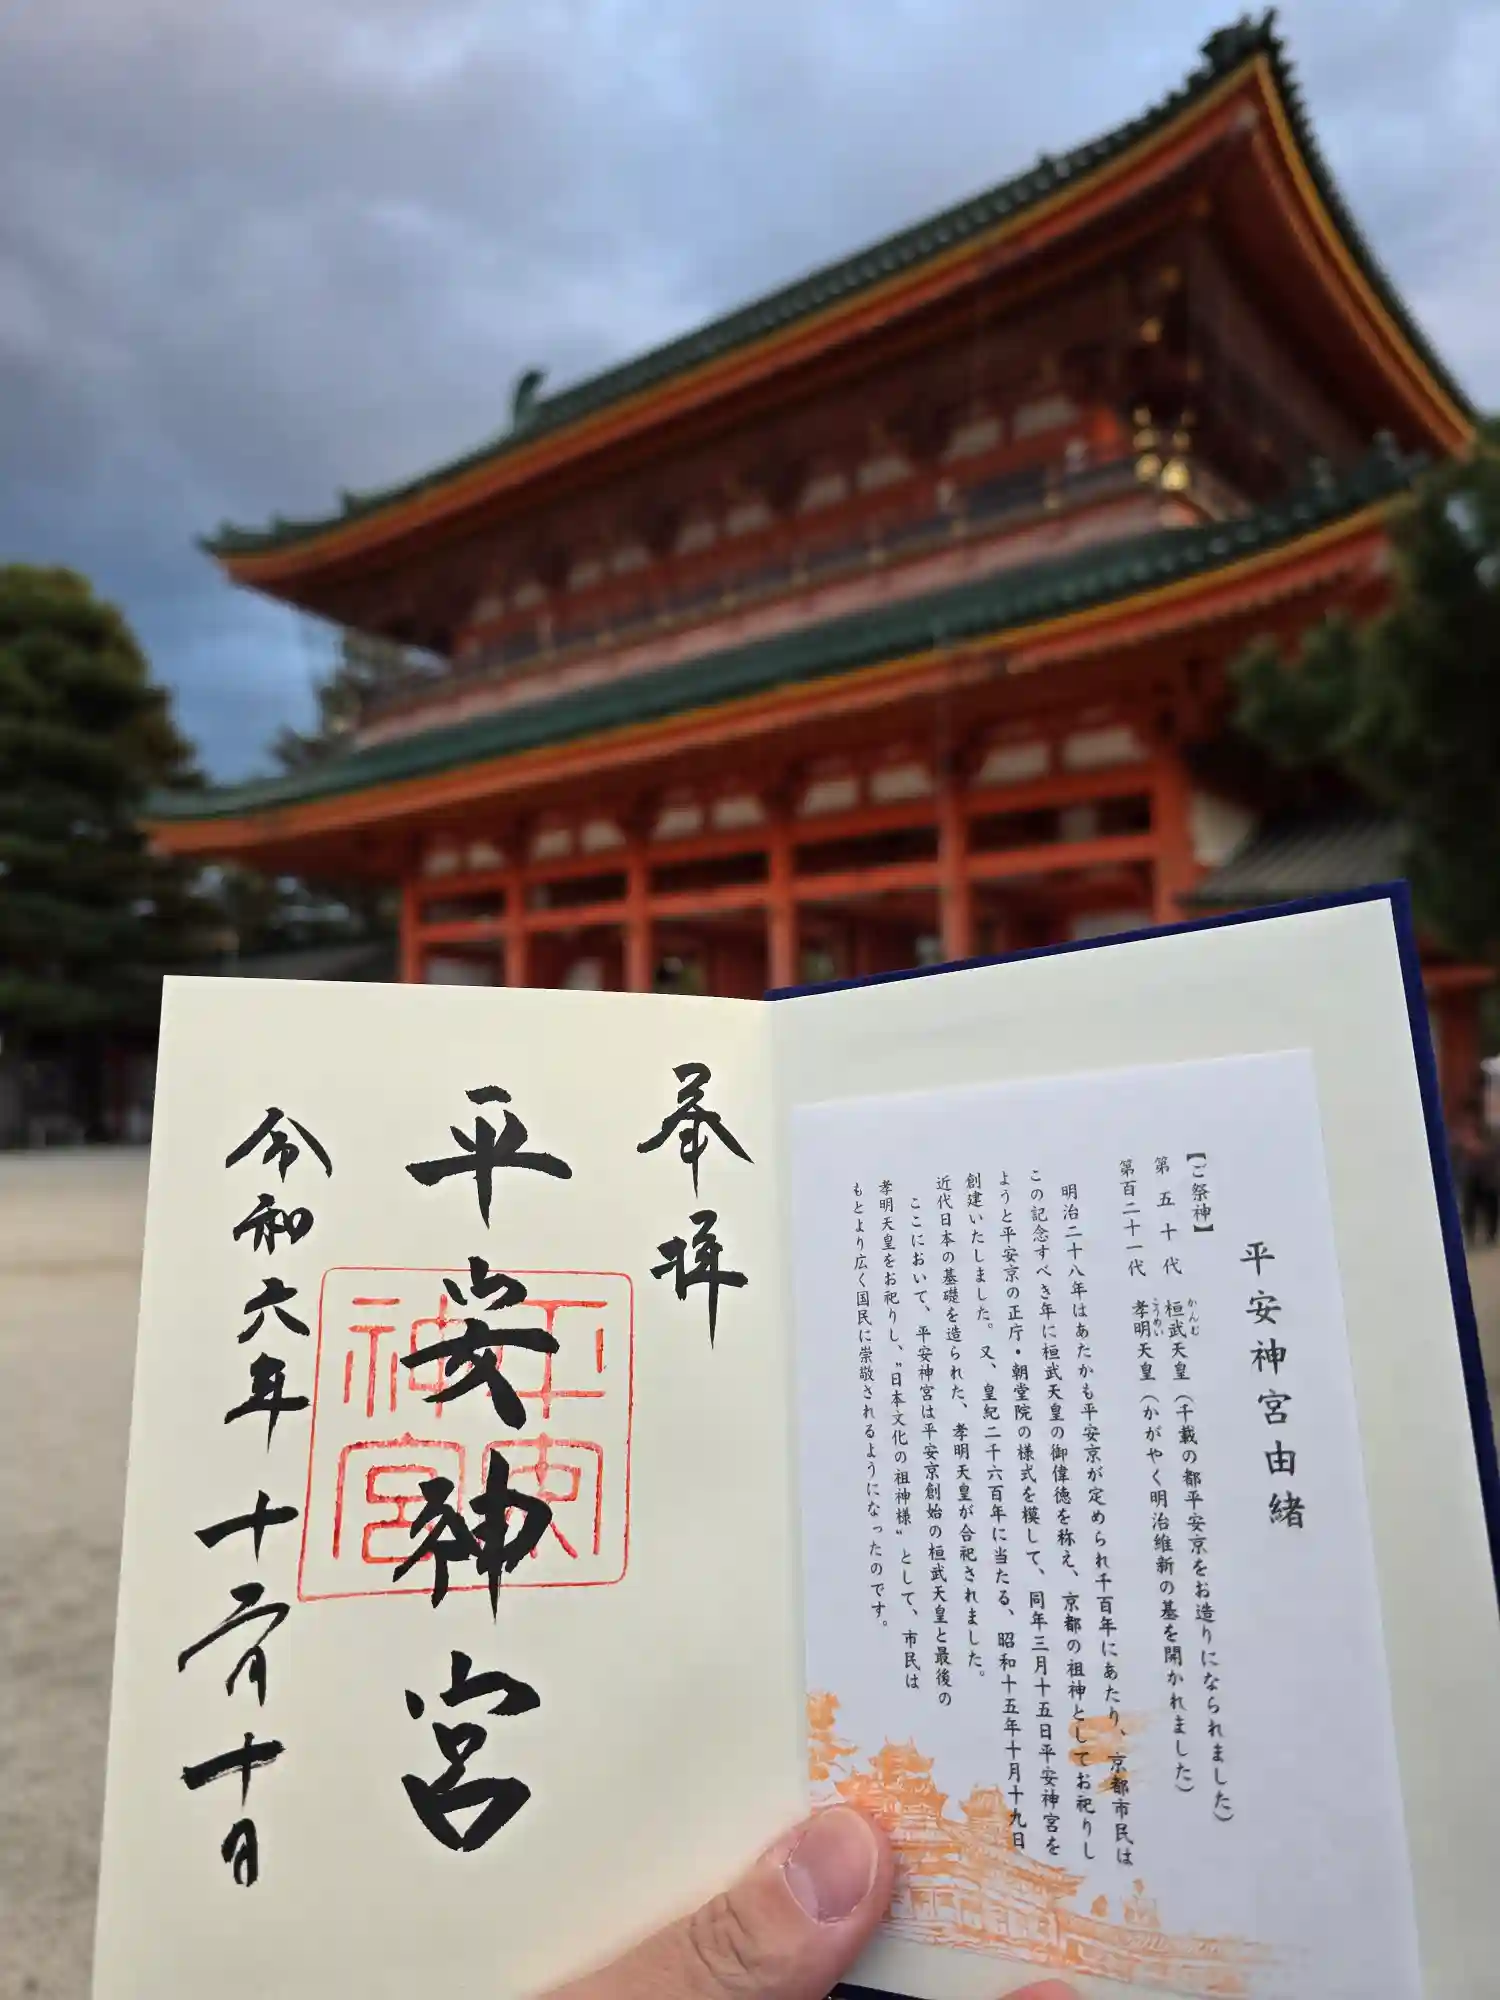 平安神宮由緒
【ご祭神】
第五十代 桓武天皇（千載の都平安京をお造りになられました）
かんむ
第百二十一代 孝明天皇（かがやく明治維新の基を開かれました）
こうめい
明治二十八年はあたかも平安京が定められ千百年にあたり、京都市民は
この記念すべき年に桓武天皇の御偉徳を称え、京都の祖神としてお祀りし
ようと平安京の正庁・朝堂院の様式を模して、同年三月十五日平安神宮を
創建いたしました。又、皇紀二千六百年に当たる、昭和十五年十月十九日
近代日本の基礎を造られた、孝明天皇が合祀されました。
ここにおいて、平安神宮は平安京創始の桓武天皇と最後の
孝明天皇をお祀りし、〝日本文化の祖神様〟として、市民は
もとより広く国民に崇敬されるようになったのです。
奉拝
平安神宮
平安神宮
令和六年十二月十日